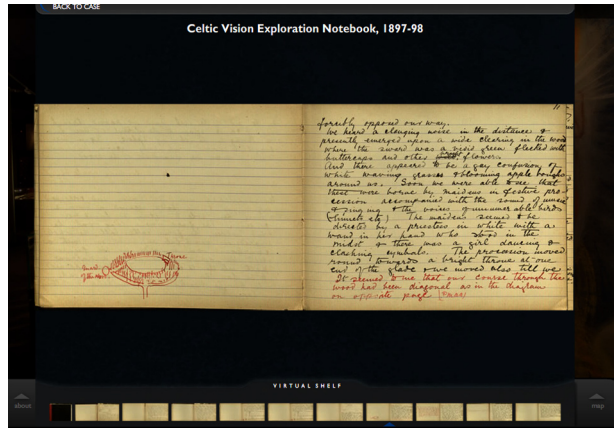 BACK TO CASE
Celtic Vision Exploration Notebook, 1897-98
11
forcibly opposed our way.
We heard a clanging noise in the distance &
presently emerged upon a wide clearing in the wood
where the sward was a vivid green flecked with
buttercups and other flowers.
And there appeared to be a gay confusion of
white waving grasses & blooming apple boughs
around us. Soon we were able to see that
these were borne by maidens in festive pro-
cession accompanied with the sound of music
& singing & the voices of innumerable birds
(linnets etc) The maidens seemed to be
directed by a priestess in white with a
wand in her hand who stood in the
midst & there was a girl dancing &
clashing cymbals. The procession moved
round towards a bright throne at one
end of the glade & we moved also till we
It seemed to me that our course through the
wood had been diagonal as in the diagram
on opposite page
VIRTUAL SHELF
about
map